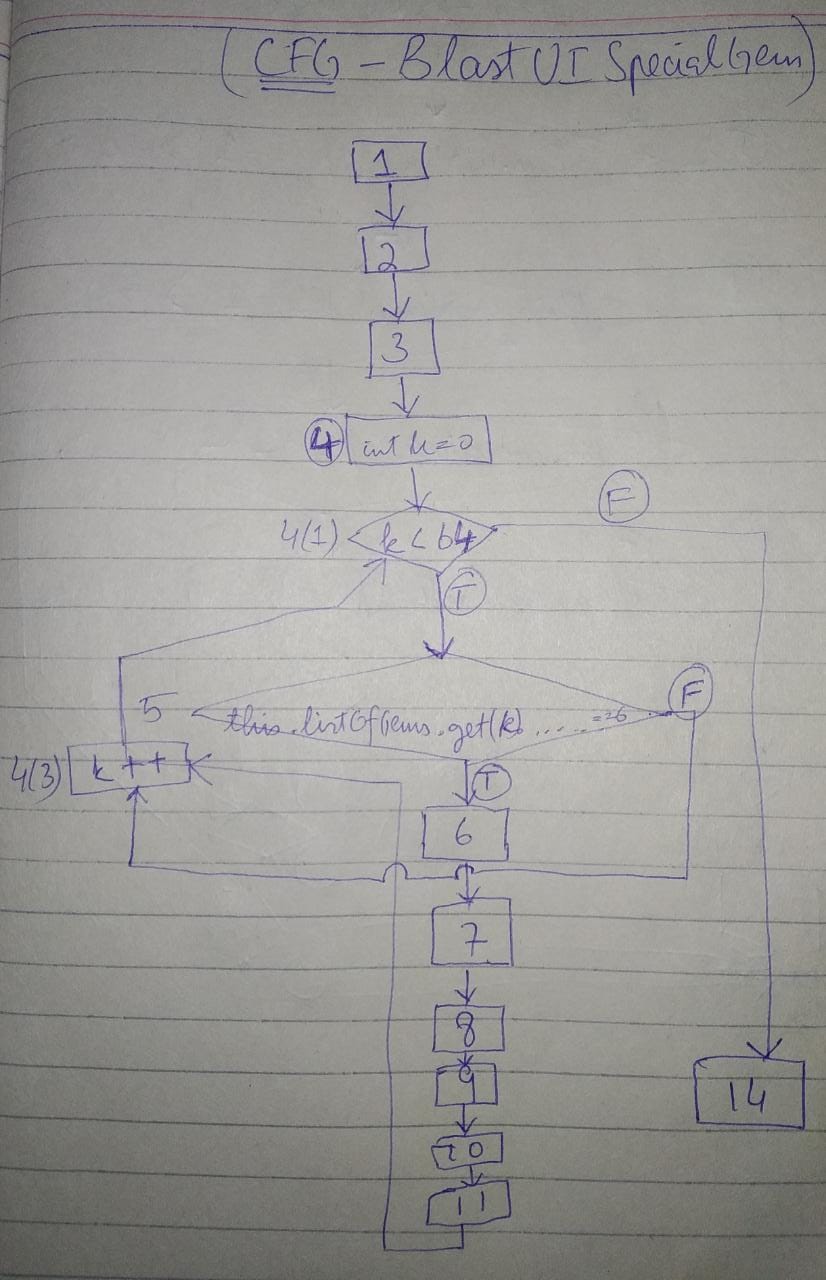 (CFG - Blast UI Special Gem)
1
2
3
4 int k=0
F
4(1) k < 64
T
F
5 this.listOfGems.get(k) ..... ==26
4(3) k ++
T
6
7
8
9
14
10
11